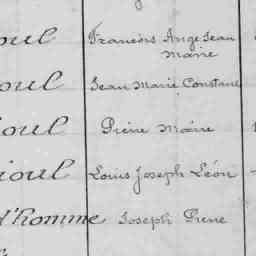 oul François Ange Jean
Marie
oul Jean Marie Constant
ioul Pierre Marie
ioul Louis Joseph Léon
l'homme Joseph Pierre